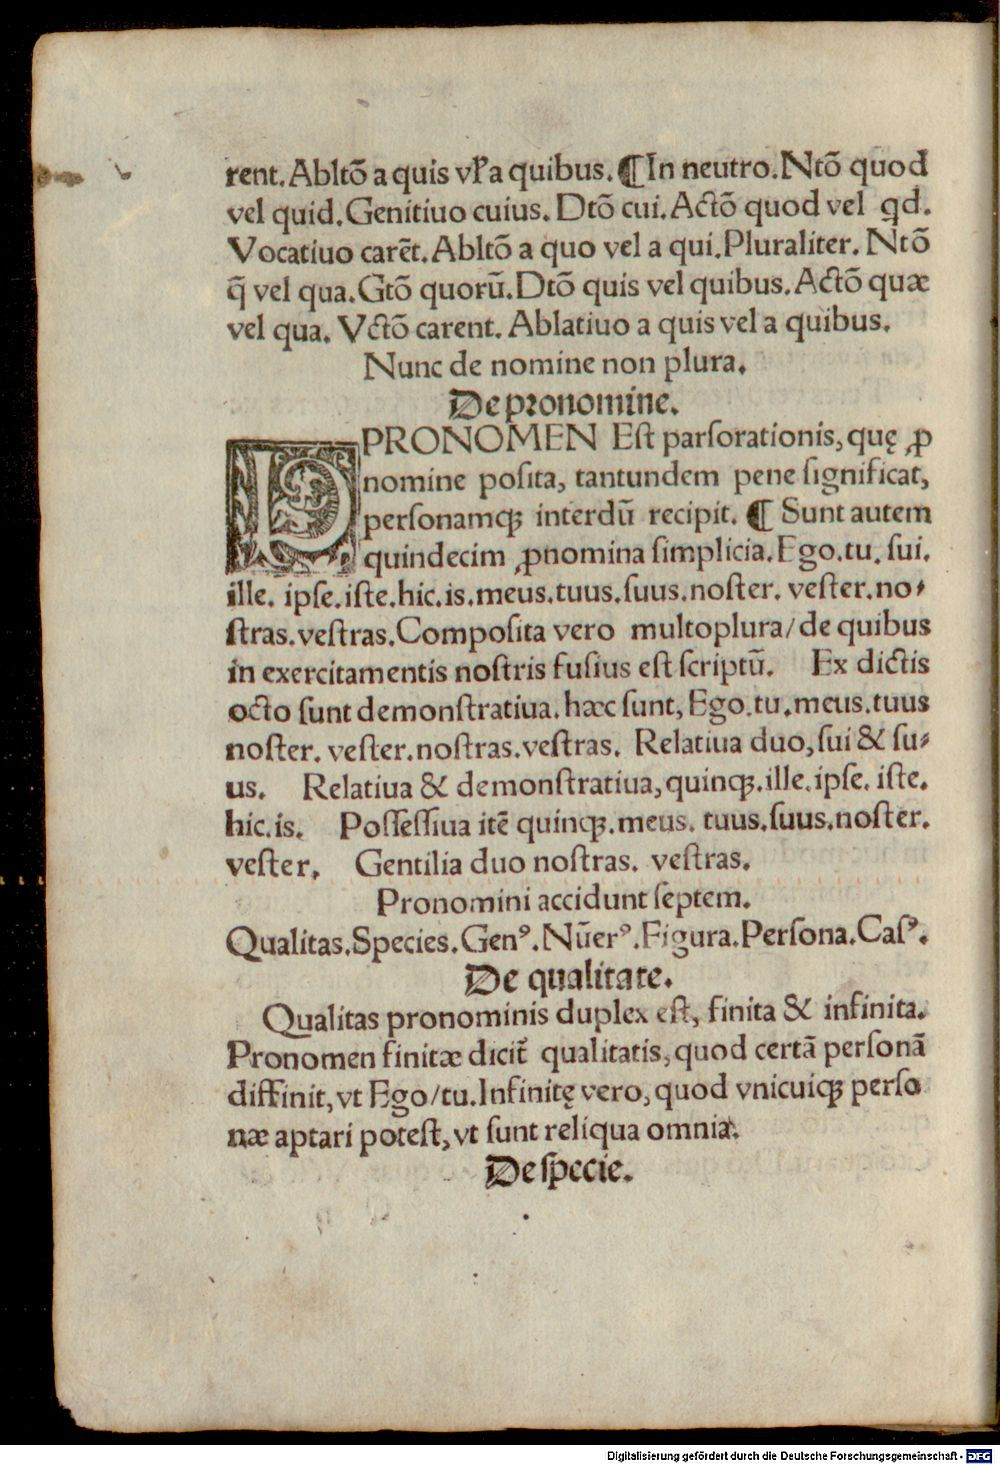 rent. Abltō a quis vľ a quibus. ¶ In neutro. Ntō quod
vel quid. Genitiuo cuius. Dtō cui. Actō quod vel qd.
Vocatiuo carēt. Abltō a quo vel a qui. Pluraliter. Ntō
q̄ vel qua. Gtō quorū. Dtō quis vel quibus. Actō quæ
vel qua. Vctō carent. Ablatiuo a quis vel a quibus.
Nunc de nomine non plura.
De pꝛonomine.
PRONOMEN Eſt parſorationis, quę ꝓ
nomine poſita, tantundem pene ſignificat,
perſonamqꝫ interdū recipit. ¶ Sunt autem
quindecim ꝓnomina ſimplicia. Ego. tu. ſui.
ille. ipſe. iſte. hic. is. meus. tuus. ſuus. noſter. veſter. no⸗
ſtras. veſtras. Compoſita vero multoplura/ de quibus
in exercitamentis noſtris fuſius eſt ſcriptū. Ex dictis
octo ſunt demonſtratiua. hæc ſunt, Ego. tu. meus. tuus
noſter. veſter. noſtras. veſtras. Relatiua duo, ſui & ſu⸗
us. Relatiua & demonſtratiua, quinqꝫ. ille. ipſe. iſte.
hic. is. Poſſeſſiua itē quinqꝫ. meus. tuus. ſuus. noſter.
veſter. Gentilia duo noſtras. veſtras.
Pronomini accidunt ſeptem.
Qualitas. Species. Genꝰ. Nūerꝰ. Figura. Perſona. Caſꝰ.
De qualitate.
Qualitas pronominis duplex eſt, finita & infinita.
Pronomen finitæ dicit̄ qualitatis, quod certā perſonā
diffinit, vt Ego/ tu. Infinitę vero, quod vnicuiqꝫ perſo
næ aptari poteſt, vt ſunt reliqua omnia.
De ſpecie.
Digitalisierung gefördert durch die Deutsche Forschungsgemeinschaft - DFG